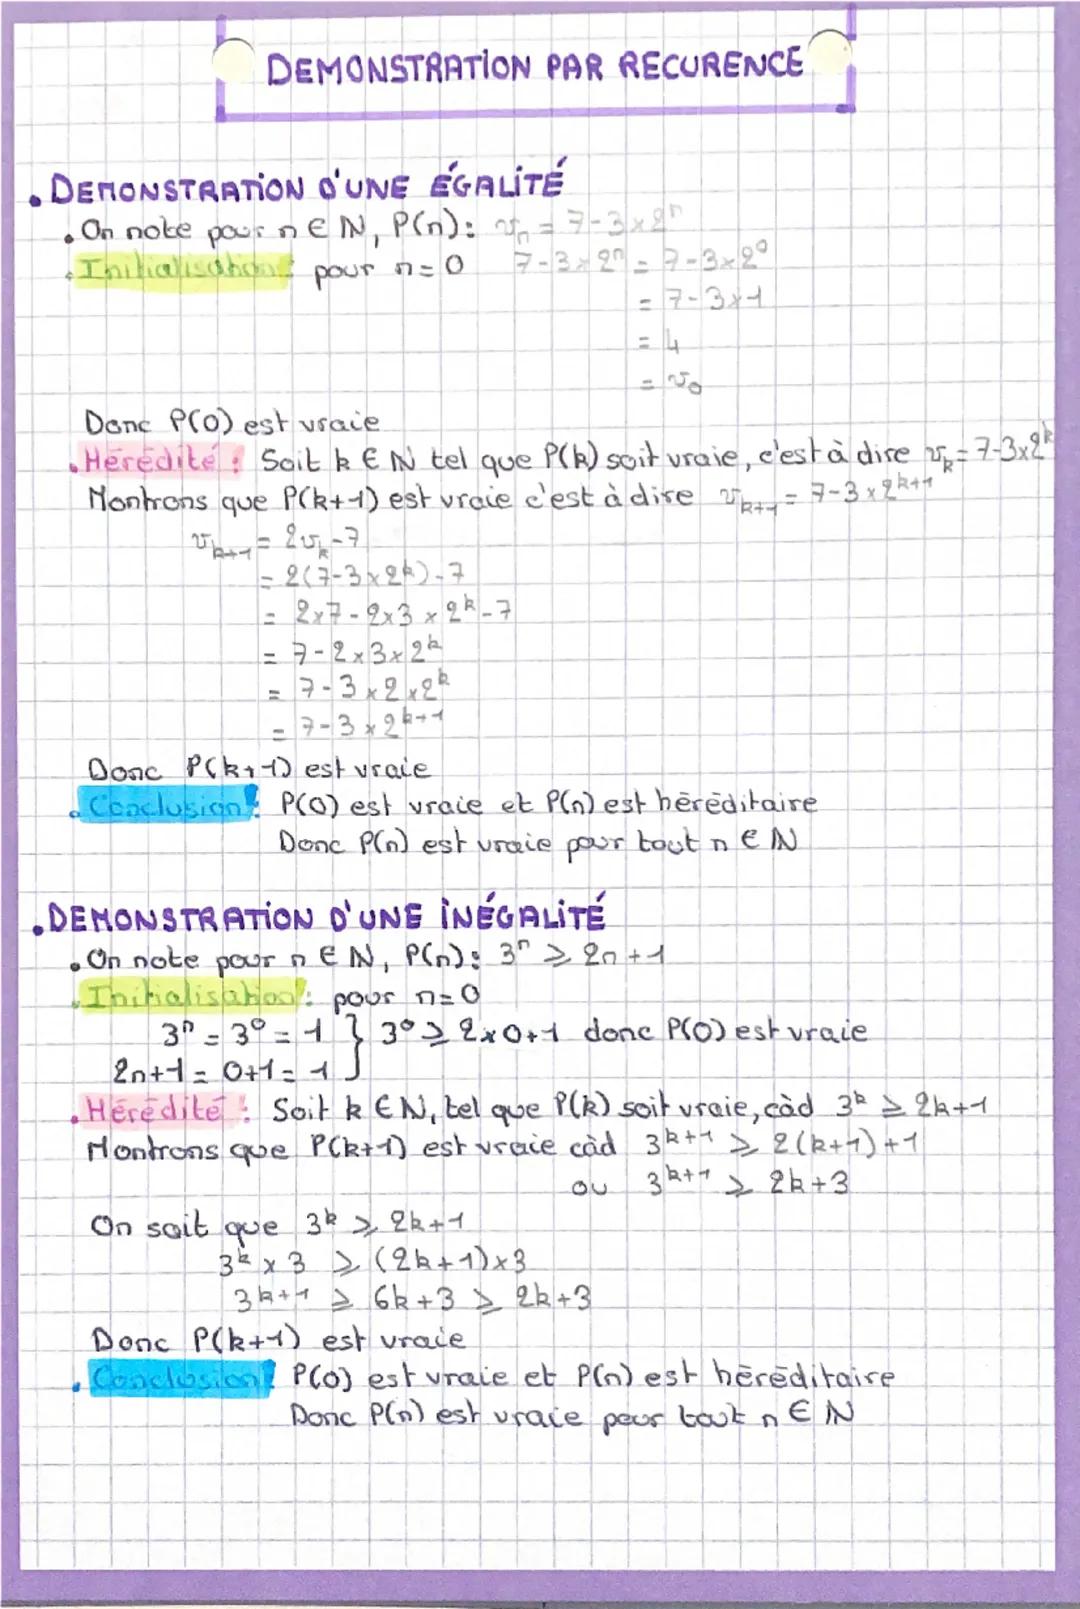 DEMONSTRATION PAR RECURENCE
• DEMONSTRATION D'UNE ÉGALITÉ
• On note pour n ∈ ℕ, P(n): vₙ = 7-3×2ⁿ
• Initialisation: pour n=0 7-3×2ⁿ = 7-3×2⁰
= 7-3×1
= 4
= v₀
Donc P(0) est vraie
• Hérédité : Soit k ∈ ℕ tel que P(k) soit vraie, c'est à dire vₖ = 7-3×2ᵏ
Montrons que P(k+1) est vraie c'est à dire vₖ₊₁ = 7-3×2ᵏ⁺¹
vₖ₊₁ = 2vₖ-7
= 2(7-3×2ᵏ)-7
= 2×7-2×3×2ᵏ-7
= 7-2×3×2ᵏ
= 7-3×2×2ᵏ
= 7-3×2ᵏ⁺¹
Donc P(k+1) est vraie
• Conclusion: P(0) est vraie et P(n) est héréditaire
Donc P(n) est vraie pour tout n ∈ ℕ
• DEMONSTRATION D'UNE INÉGALITÉ
• On note pour n ∈ ℕ, P(n): 3ⁿ ⩾ 2n+1
• Initialisation: pour n=0
3ⁿ = 3⁰ = 1 } 3⁰ ⩾ 2×0+1 donc P(0) est vraie
2n+1 = 0+1 = 1
• Hérédité : Soit k ∈ ℕ, tel que P(k) soit vraie, càd 3ᵏ ⩾ 2k+1
Montrons que P(k+1) est vraie càd 3ᵏ⁺¹ ⩾ 2(k+1)+1
ou 3ᵏ⁺¹ ⩾ 2k+3
On sait que 3ᵏ ⩾ 2k+1
3ᵏ × 3 ⩾ (2k+1)×3
3ᵏ⁺¹ ⩾ 6k+3 ⩾ 2k+3
Donc P(k+1) est vraie
• Conclusion: P(0) est vraie et P(n) est héréditaire
Donc P(n) est vraie pour tout n ∈ ℕ